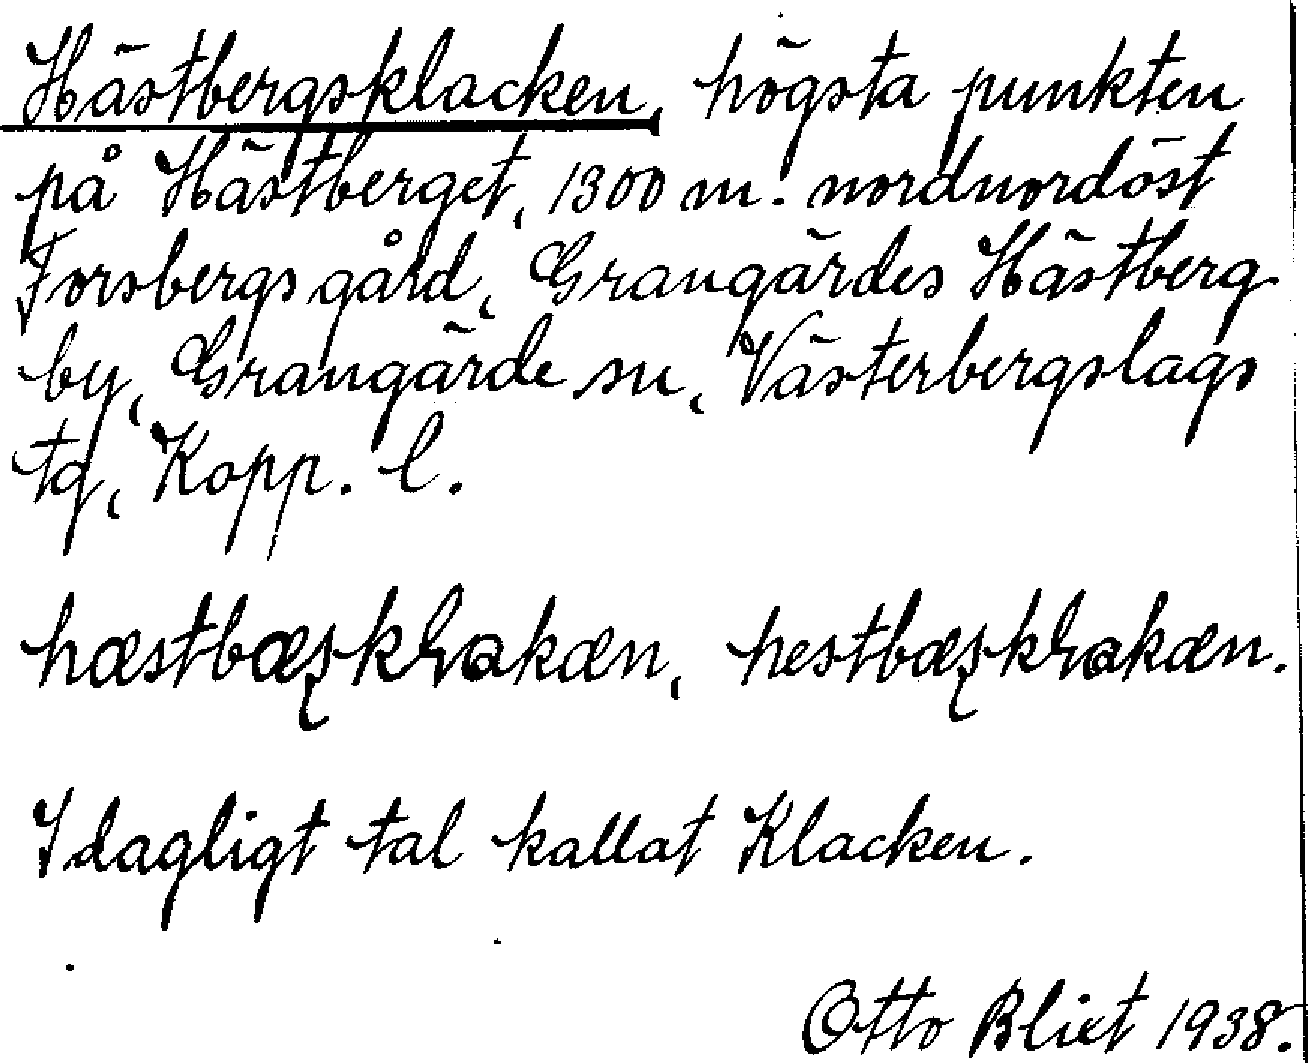 Hästbergsklacken, högsta punkten
på Hästberget, 1300 m. nordnordöst
Forsbergs gård, Grangärdes Hästberg
by, Grangärde sn, Västerbergslags
tg, Kopp. l.
hæstbæʂkɽakæn, hestbæʂkɽakæn.
I dagligt tal kallat Klacken.
Otto Blixt 1938.